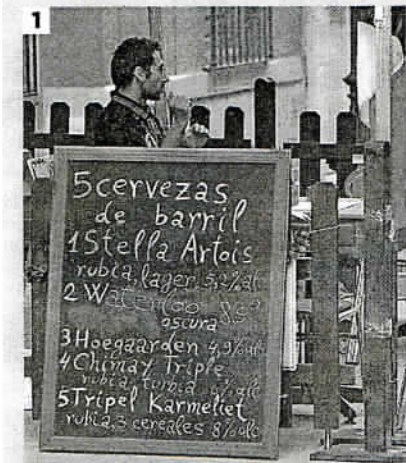 1
5 cervezas
de barril
1 Stella Artois
rubia, lager, 5,2% al
2 Waterloo 8,5º
oscura
3 Hoegaarden 4,9% alc
4 Chimay Triple
rubia, turbia % alc
5 Tripel Karmeliet
rubia, 3 cereales 8% alc